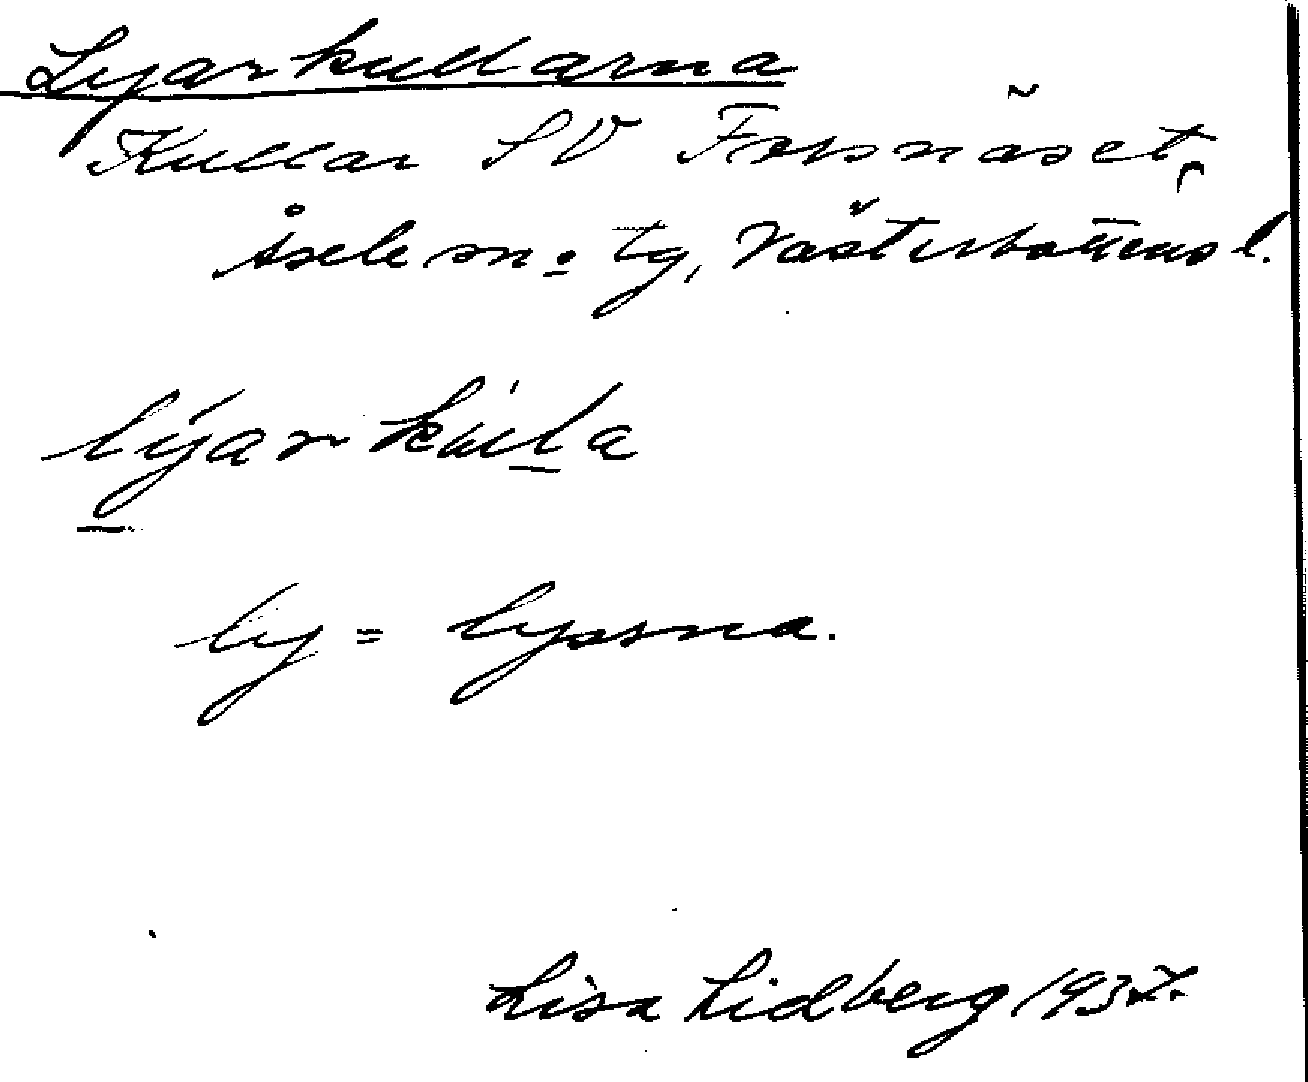 Lyarkullarna
Kullar SV Forsnäset,
Åsele sn o tg, Västerbottens l.
lýarkúla
ly = lyssna.
Lisa Lidberg 1937.